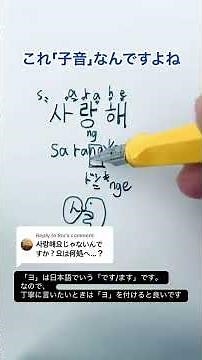 これ「子音」なんですよね
s a r a h e
사랑해
ng
Sarang
nge
사
Reply to Sio's comment
사랑해요じゃないんで
すか？요は何処へ…？
「ヨ」は日本語でいう「です/ます」です。
なので、
丁寧に言いたいときは「ヨ」を付けると良いです